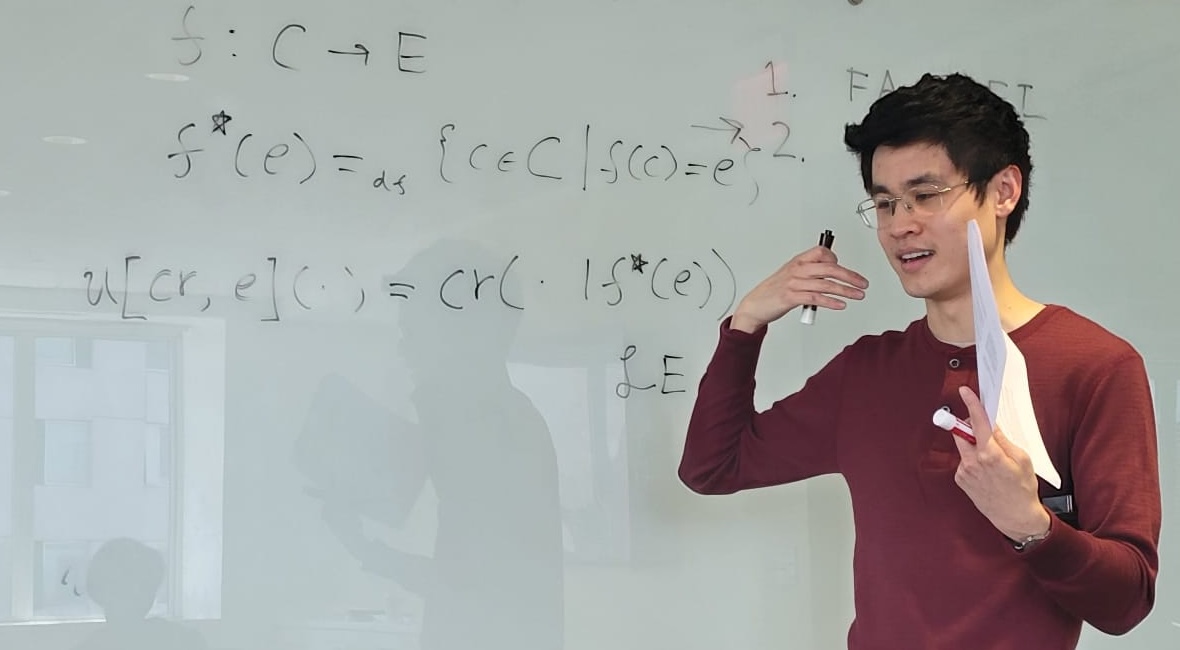 f : C → E
f*(e) =df {c∈C | f(c)=e}
u[cr, e](·) = cr(· | f*(e))
ℒE
1.
→ 2.